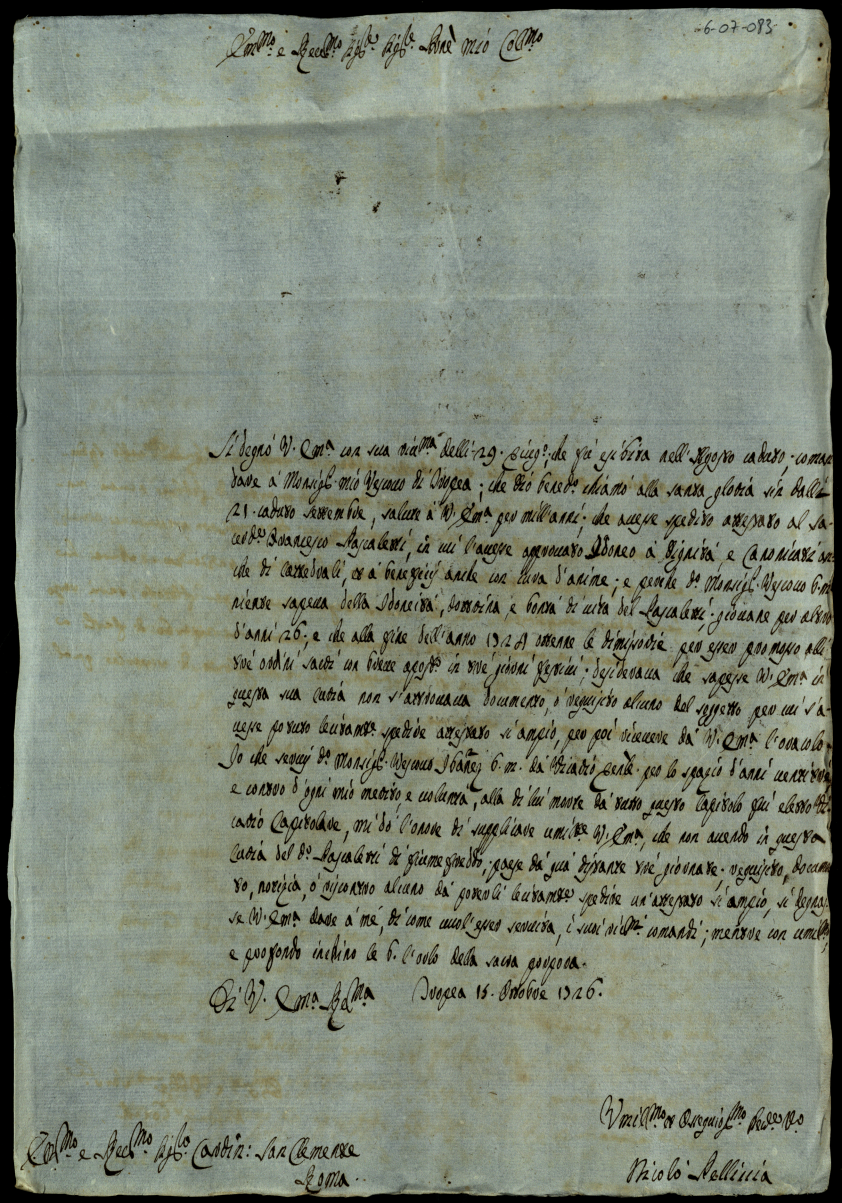 6-07-083
Em.mo e Rev.mo Sig.re Sig.re Pron.e mio Col.mo
Si degnò V. Em.a con sua riv.ma delli 29. che fù esibita nell'Agosto caduto coman
dare à Monsig.r mio Vescovo di Tropea; che Dio bened.o chiamò alla santa gloria sin dalli
21. caduto settembre, salute à V. Em.a per mill'anni; che avesse spedito attestato al Sa-
cerd.e Francesco Pascaletti, in cui l'avesse approvato Idoneo à dignità e Canonicati an-
che di Cattedrali, et à beneficij anche con cura d'anime; e perche d.o Monsig.r Vescovo b.m.
niente sapeva della Idoneità, dottrina, e bontà di vita del Pascaletti, giovane per altro
d'anni 26. e che alla fine dell'anno 1724 ottenne le dimissorie per esser promosso alli
trè ordini sacri con breve apost.o in trè giorni festivi; desiderava che sapesse V. Em.a in
questa sua Curia non s'attrovava documento, ò requisito alcuno del soggetto per cui s'a-
vesse potuto sicuram.te spedire attestato sì ampio, per poi ricevere dà V. Em.a l'oracolo.
Io che servij d.o Monsig.r Vescovo Ibañez b.m. dà Vicario Gen.le per lo spazio d'anni venti trè
e contro d'ogni mio merito, e volontà, alla di lui morte dà tutto questo Capitolo fui eletto Vi-
cario Capitolare, mi dò l'onore di supplicare umilm.te V. Em.a, che non avendo in questa
Curia del d.o Pascaletti di fiumefreddo, paese dà quà distante trè giornate, requisito, docume
to, notizia, ò riscontro alcuno dà poterli sicuram.te spedire un'attestato sì ampio, si degnas
se V. Em.a dare à mè, di come vuol'esser servita, i suoi riv.mi comandi; mentre con umil.mo,
e profondo inchino le b. l'orlo della sacra porpora.
Di V. Em.a Rev.ma Tropea 15. Ottobre 1726.
Umil.mo et Ossequios.mo Ser.re V.o
Em.mo e Rev.mo Sig.re Cardin: San Clemente
Roma.
Nicolò Pelliccia